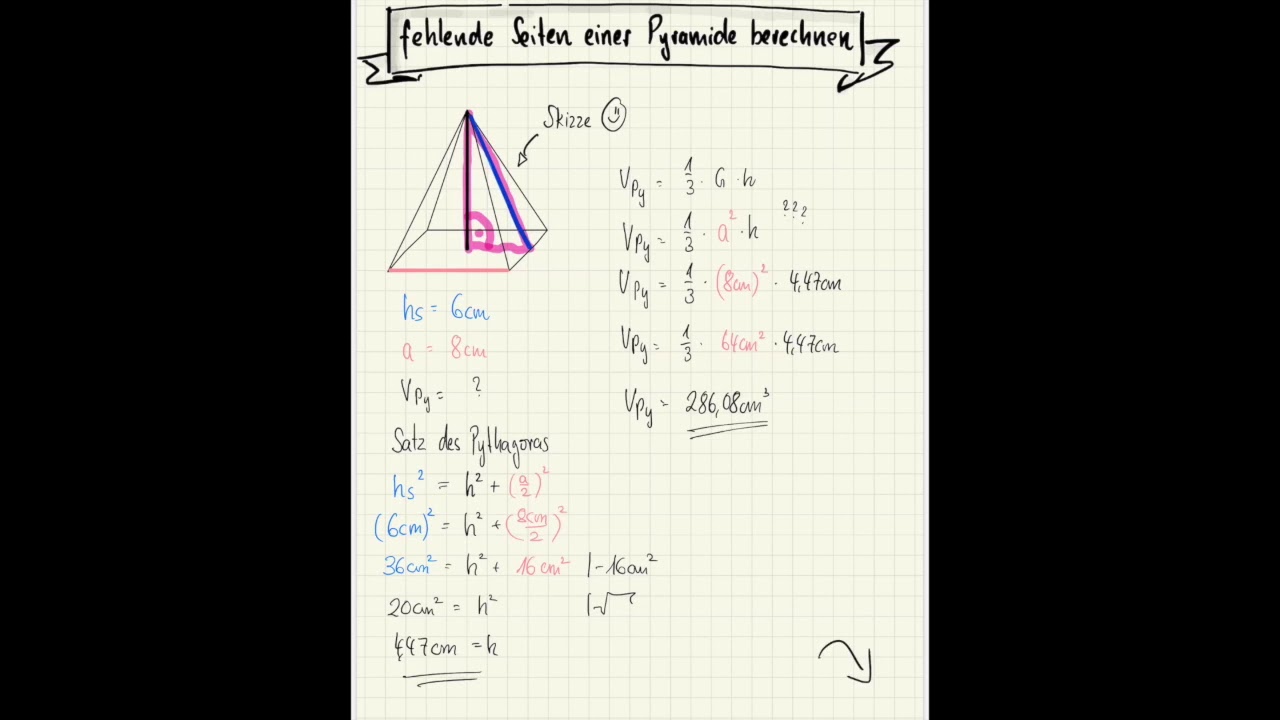 fehlende Seiten einer Pyramide berechnen
Skizze
hs = 6cm
a = 8cm
V_Py = ?
Satz des Pythagoras
hs² = h² + (a/2)²
(6cm)² = h² + (8cm/2)²
36cm² = h² + 16cm² |-16cm²
20cm² = h² |√
4,47cm = h
V_Py = 1/3 · G · h
V_Py = 1/3 · a² · h ???
V_Py = 1/3 · (8cm)² · 4,47cm
V_Py = 1/3 · 64cm² · 4,47cm
V_Py = 286,08cm³